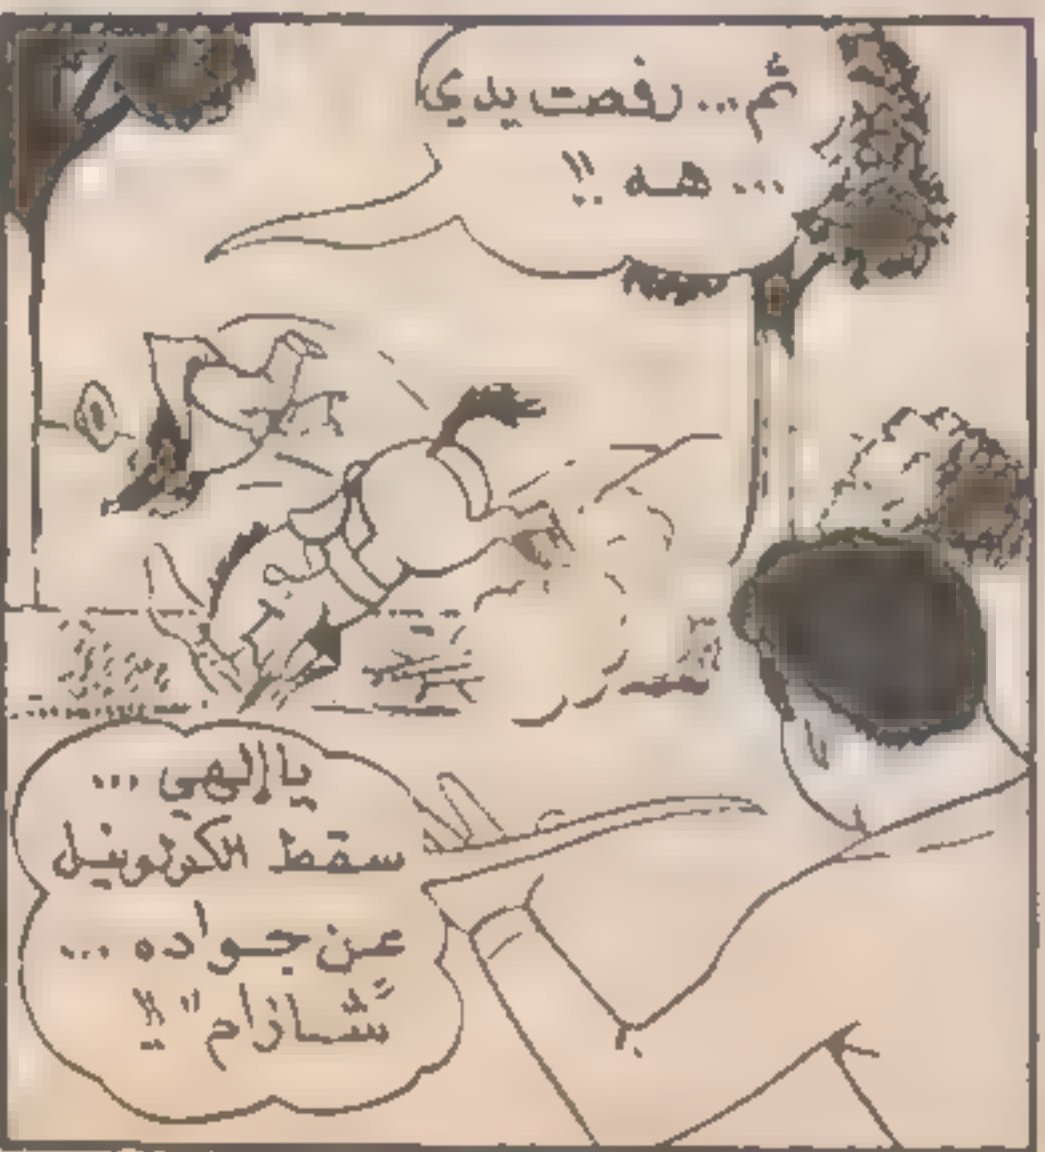 ثم... رفصت يدي
... هه !!
يا إلهي ...
سقط الكولونيل
عن جواده ...
"شازام" !!